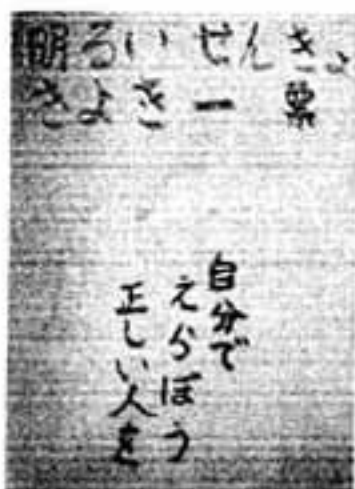 明るいせんきょ
きよき一票
自分で
えらぼう
正しい人を